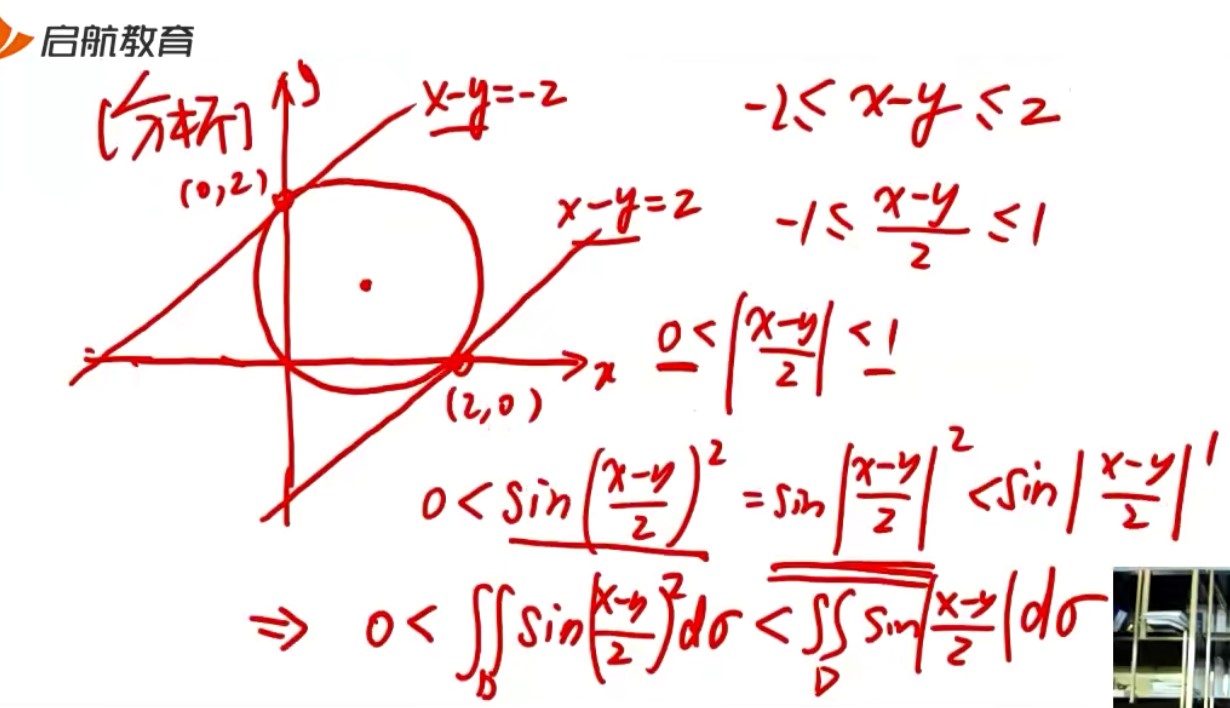 启航教育
[分析]
y
x-y=-2
-2≤ x-y ≤2
(0,2)
x-y=2
-1≤ \frac{x-y}{2} ≤1
0< |\frac{x-y}{2}| <1
x
(2,0)
0< sin(\frac{x-y}{2})^2 = sin|\frac{x-y}{2}|^2 < sin|\frac{x-y}{2}|^1
⇒ 0< ∬_D sin(\frac{x-y}{2})^2 dσ < ∬_D sin|\frac{x-y}{2}| dσ